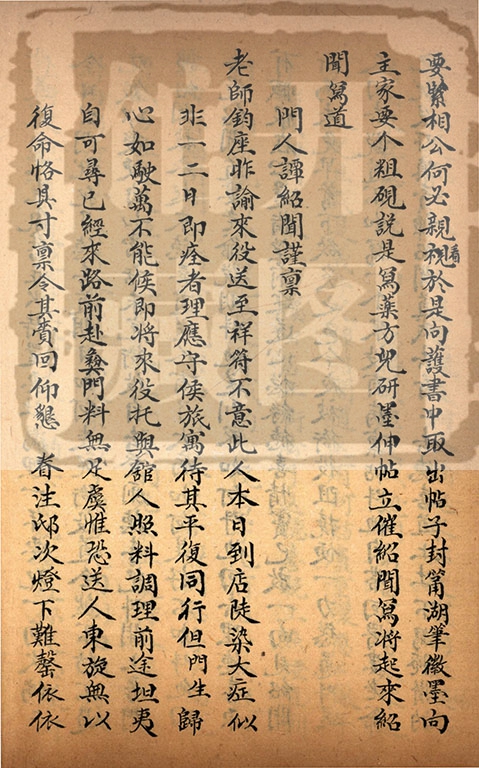 要緊相公何必親視看於是向護書中取出帖子封筩湖筆徽墨向
主家要个粗硯説是寫藥方兒研墨伸帖立催紹聞寫將起來紹
聞寫道
門人譚紹聞謹禀
老師鈞座昨諭來役送至祥符不意此人本日到店陡染大症似
非一二日即痊者理應守候旅寓待其平復同行但門生歸
心如駛萬不能候即將來役托與舘人照料調理前途坦夷
自可尋已經來路前赴黌門料無足虞惟恐送人東旋無以
復命恪具寸禀令其賫回仰懇 眷注邸次燈下難罄依依